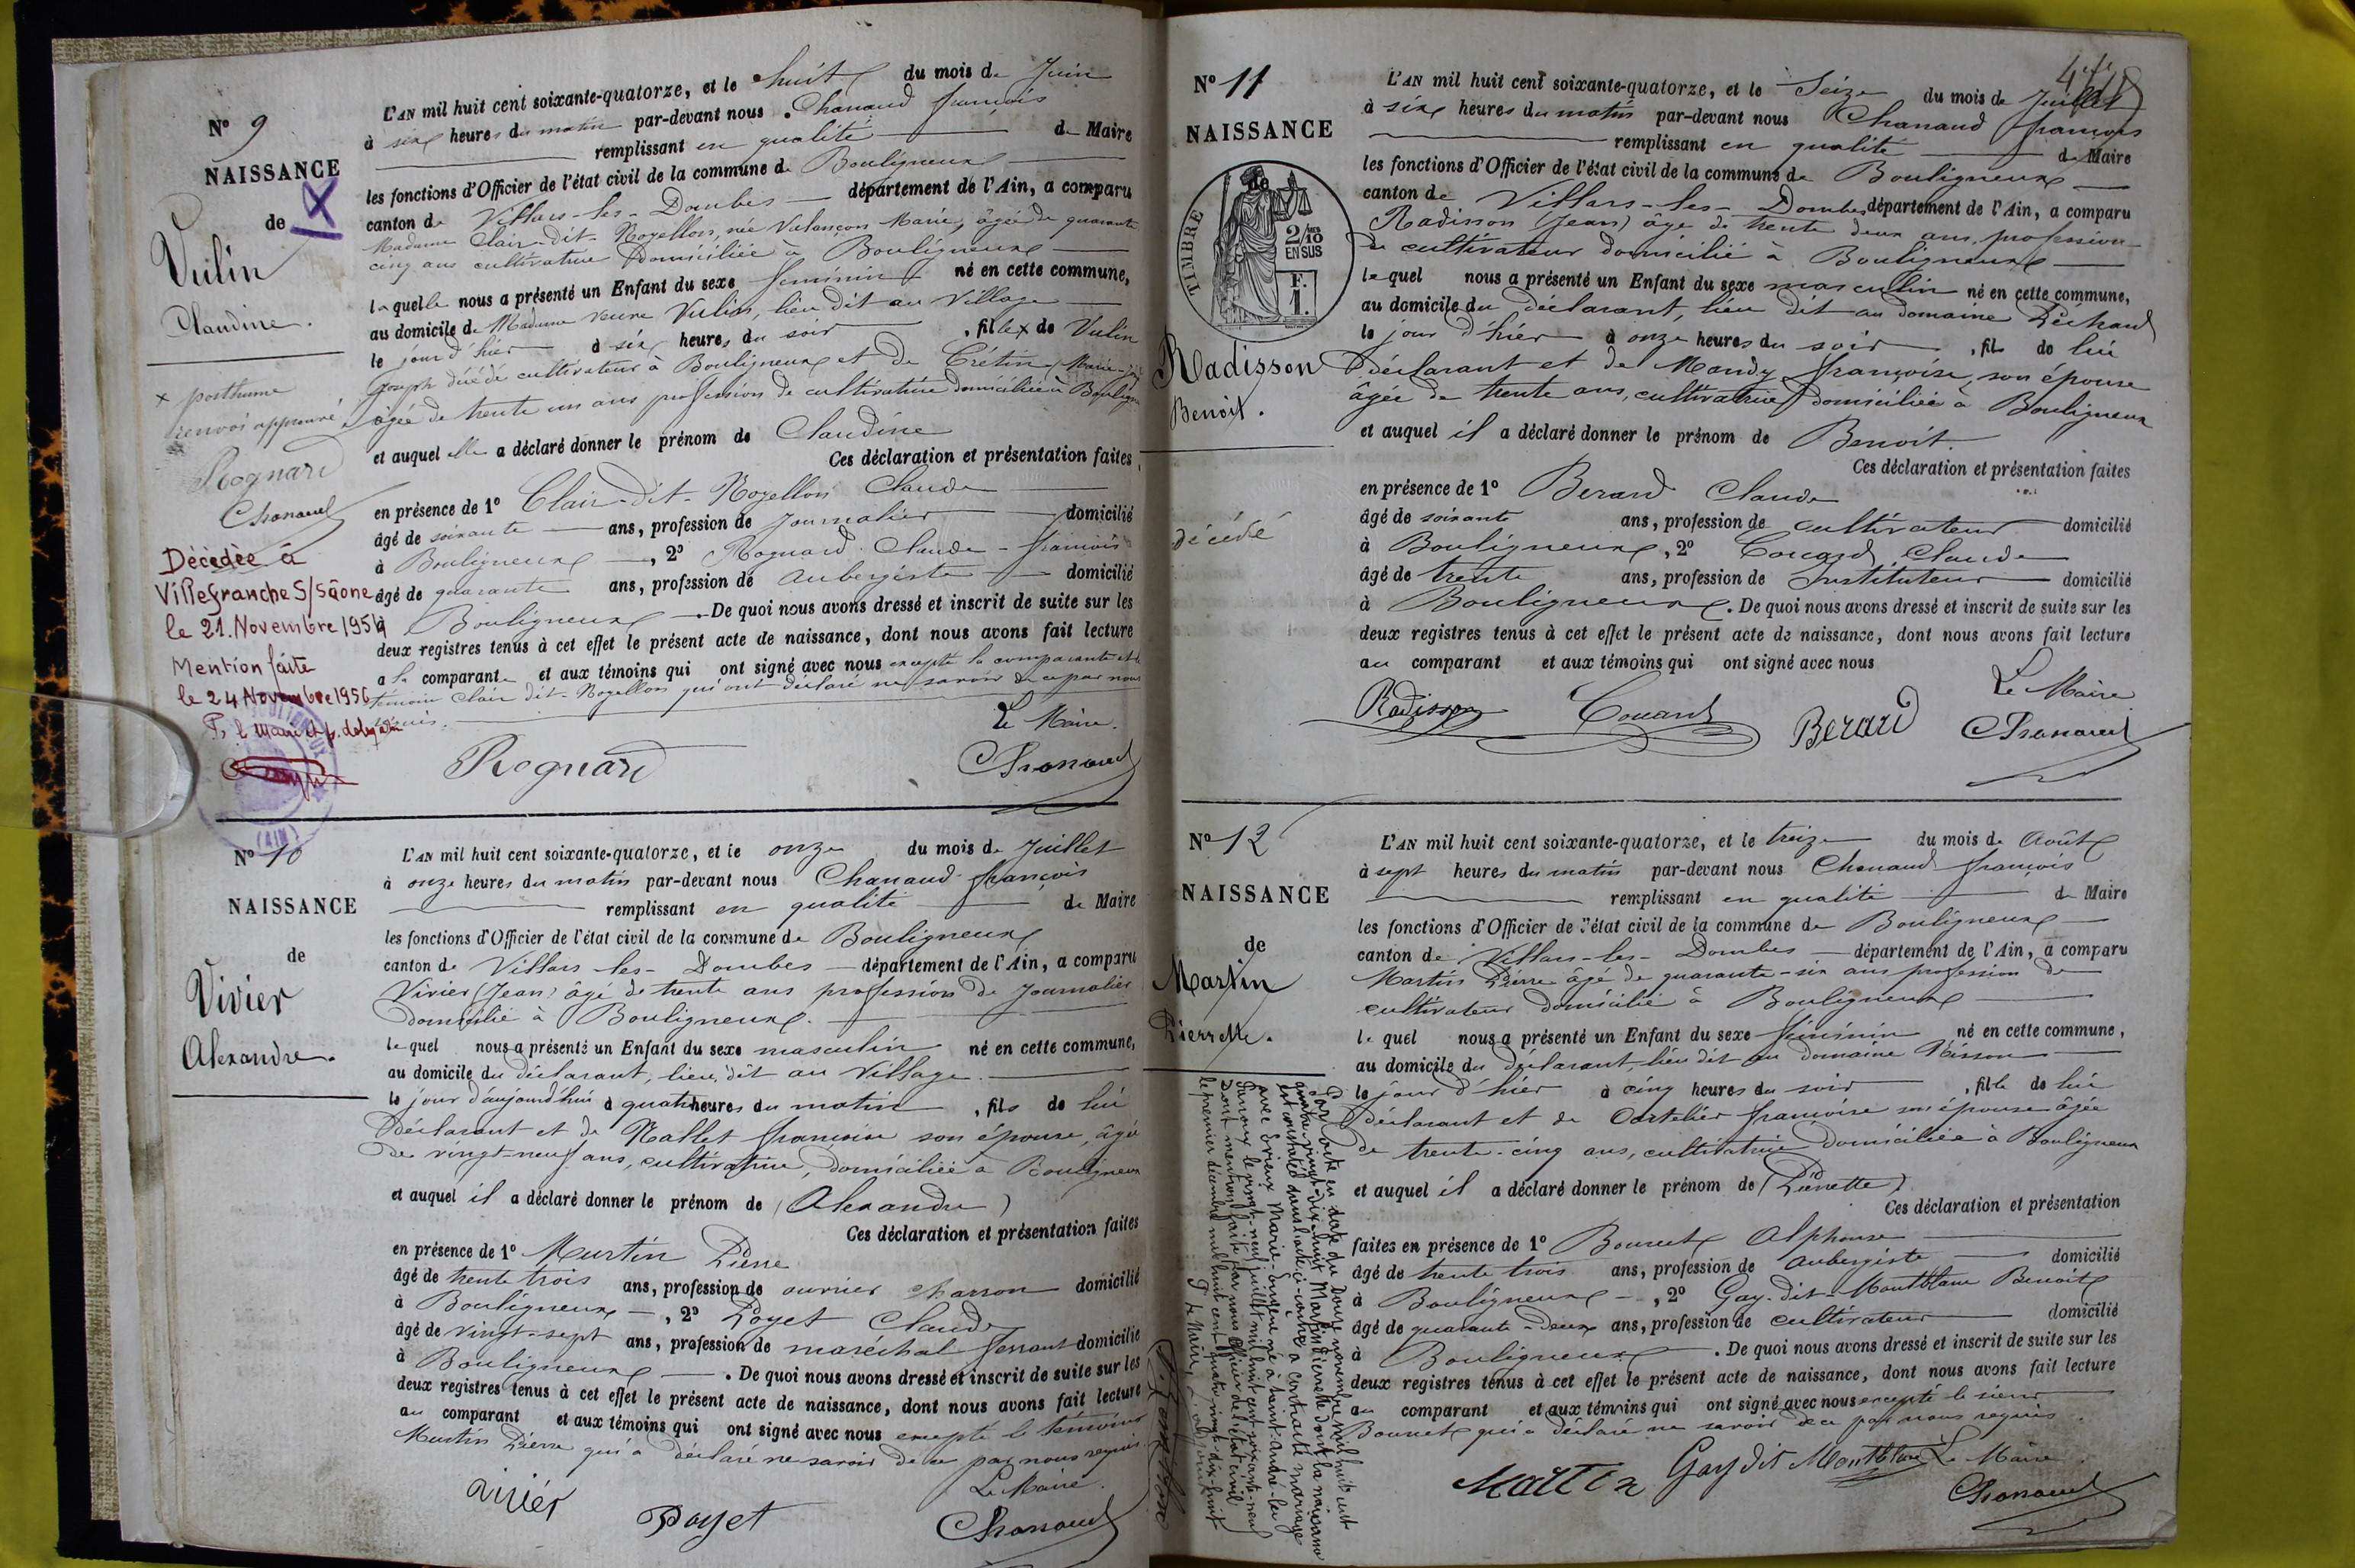 N° 9
NAISSANCE
de X
Vulin
Claudine.
x posthume
renvoi approuvé
Rognard
Chanaud
Décédée à
Villefranche S/Saône
le 21 Novembre 1954
Mention faite
le 24 Novembre 1956
P. le Maire
(AIN)
L'AN mil huit cent soixante-quatorze, et le huit du mois de Juin
à six heures du matin par-devant nous Chanaud françois
remplissant en qualité de Maire
les fonctions d'Officier de l'état civil de la commune de Bouligneux
canton de Villars-les-Dombes département de l'Ain, a comparu
Madame Clair-dit-Nogellon, née Valançon Marie, âgée de quarante
cinq ans cultivatrice domiciliée à Bouligneux
laquelle nous a présenté un Enfant du sexe féminin né en cette commune,
au domicile de Madame veuve Vulin, lieu dit au Village
le jour d'hier à six heures du soir, fille x de Vulin
Joseph décédé cultivateur à Bouligneux et de Crétin Marie
âgée de trente un ans profession de cultivatrice domiciliée à
et auquel elle a déclaré donner le prénom de Claudine
Ces déclaration et présentation faites
en présence de 1° Clair-dit-Nogellon Claude
âgé de soixante ans, profession de Journalier domicilié
à Bouligneux, 2° Rognard Claude-françois
âgé de quarante ans, profession de Aubergiste domicilié
à Bouligneux. De quoi nous avons dressé et inscrit de suite sur les
deux registres tenus à cet effet le présent acte de naissance, dont nous avons fait lecture
a la comparante et aux témoins qui ont signé avec nous excepté la comparante et le
témoin Clair dit-Nogellon qui ont déclaré ne savoir de ce par nous
requis.
Le Maire.
Rognard
Chanaud
N° 10
NAISSANCE
de
Vivier
Alexandre.
L'AN mil huit cent soixante-quatorze, et le onze du mois de Juillet
à onze heures du matin par-devant nous Chanaud françois
remplissant en qualité de Maire
les fonctions d'Officier de l'état civil de la commune de Bouligneux
canton de Villars-les-Dombes département de l'Ain, a comparu
Vivier (Jean) âgé de trente ans profession de Journalier
domicilié à Bouligneux.
lequel nous a présenté un Enfant du sexe masculin né en cette commune,
au domicile du déclarant, lieu dit au Village.
le jour d'aujourd'hui à quatre heures du matin, fils de lui
Déclarant et de Mallet françoise son épouse, âgée
de vingt-neuf ans, cultivatrice, domiciliée à Bouligneux
et auquel il a déclaré donner le prénom de (Alexandre)
Ces déclaration et présentation faites
en présence de 1° Martin Pierre
âgé de trente trois ans, profession de ouvrier charron domicilié
à Bouligneux, 2° Poyet Claude
âgé de vingt-sept ans, profession de maréchal ferrant domicilié
à Bouligneux. De quoi nous avons dressé et inscrit de suite sur les
deux registres tenus à cet effet le présent acte de naissance, dont nous avons fait lecture
au comparant et aux témoins qui ont signé avec nous excepté le témoin
Martin Pierre qui a déclaré ne savoir de ce par nous requis.
Le Maire.
vivier
Poyet
Chanaud
N° 11
NAISSANCE
de
TIMBRE
2/10
EN SUS
F.
1.
Radisson
Benoit.
décédé
L'AN mil huit cent soixante-quatorze, et le Seize du mois de Juillet
à six heures du matin par-devant nous Chanaud françois
remplissant en qualité de Maire
les fonctions d'Officier de l'état civil de la commune de Bouligneux
canton de Villars-les-Dombes département de l'Ain, a comparu
Radisson (Jean) âgé de trente deux ans, profession
de cultivateur domicilié à Bouligneux
lequel nous a présenté un Enfant du sexe masculin né en cette commune,
au domicile du déclarant, lieu dit au domaine
le jour d'hier à onze heures du soir, fils de lui
Déclarant et de Mandy françoise, son épouse
âgée de trente ans, cultivatrice domiciliée à Bouligneux
et auquel il a déclaré donner le prénom de Benoit.
Ces déclaration et présentation faites
en présence de 1° Berard Claude
âgé de soixante ans, profession de cultivateur domicilié
à Bouligneux, 2° Couard Claude
âgé de trente ans, profession de Instituteur domicilié
à Bouligneux. De quoi nous avons dressé et inscrit de suite sur les
deux registres tenus à cet effet le présent acte de naissance, dont nous avons fait lecture
au comparant et aux témoins qui ont signé avec nous
Le Maire
Radisson
Couard
Berard
Chanaud
N° 12
NAISSANCE
de
Martin
Pierrette.
Par acte en date du douze novembre mil huit cent
quatre-vingt-dix-huit Martin Pierrette dont la naissance
est constatée dans l'acte ci-contre a contracté mariage
avec Evieux Marie-Eugène né à Saint-André-le-
le vingt-neuf juillet mil huit cent soixante-neuf
Dont mention faite par nous Officier de l'état civil
le premier décembre mil huit cent quatre-vingt-dix-huit
P. le Maire,
L'AN mil huit cent soixante-quatorze, et le treize du mois de Août
à sept heures du matin par-devant nous Chanaud françois
remplissant en qualité de Maire
les fonctions d'Officier de l'état civil de la commune de Bouligneux
canton de Villars-les-Dombes département de l'Ain, a comparu
Martin Pierre âgé de quarante-six ans profession de
cultivateur domicilié à Bouligneux
lequel nous a présenté un Enfant du sexe féminin né en cette commune,
au domicile du déclarant, lieu dit au domaine
le jour d'hier à cinq heures du soir, fille de lui
Déclarant et de Cortelier françoise son épouse âgée
de trente-cinq ans, cultivatrice domiciliée à Bouligneux
et auquel il a déclaré donner le prénom de (Pierrette)
Ces déclaration et présentation
faites en présence de 1° Alphonse
âgé de trente trois ans, profession de Aubergiste domicilié
à Bouligneux, 2° Gay-dit-Montblanc Benoit
âgé de quarante-deux ans, profession de cultivateur domicilié
à Bouligneux. De quoi nous avons dressé et inscrit de suite sur les
deux registres tenus à cet effet le présent acte de naissance, dont nous avons fait lecture
au comparant et aux témoins qui ont signé avec nous excepté le sieur
qui a déclaré ne savoir de ce par nous requis.
Martin
Gay dit Montblanc
Le Maire
Chanaud